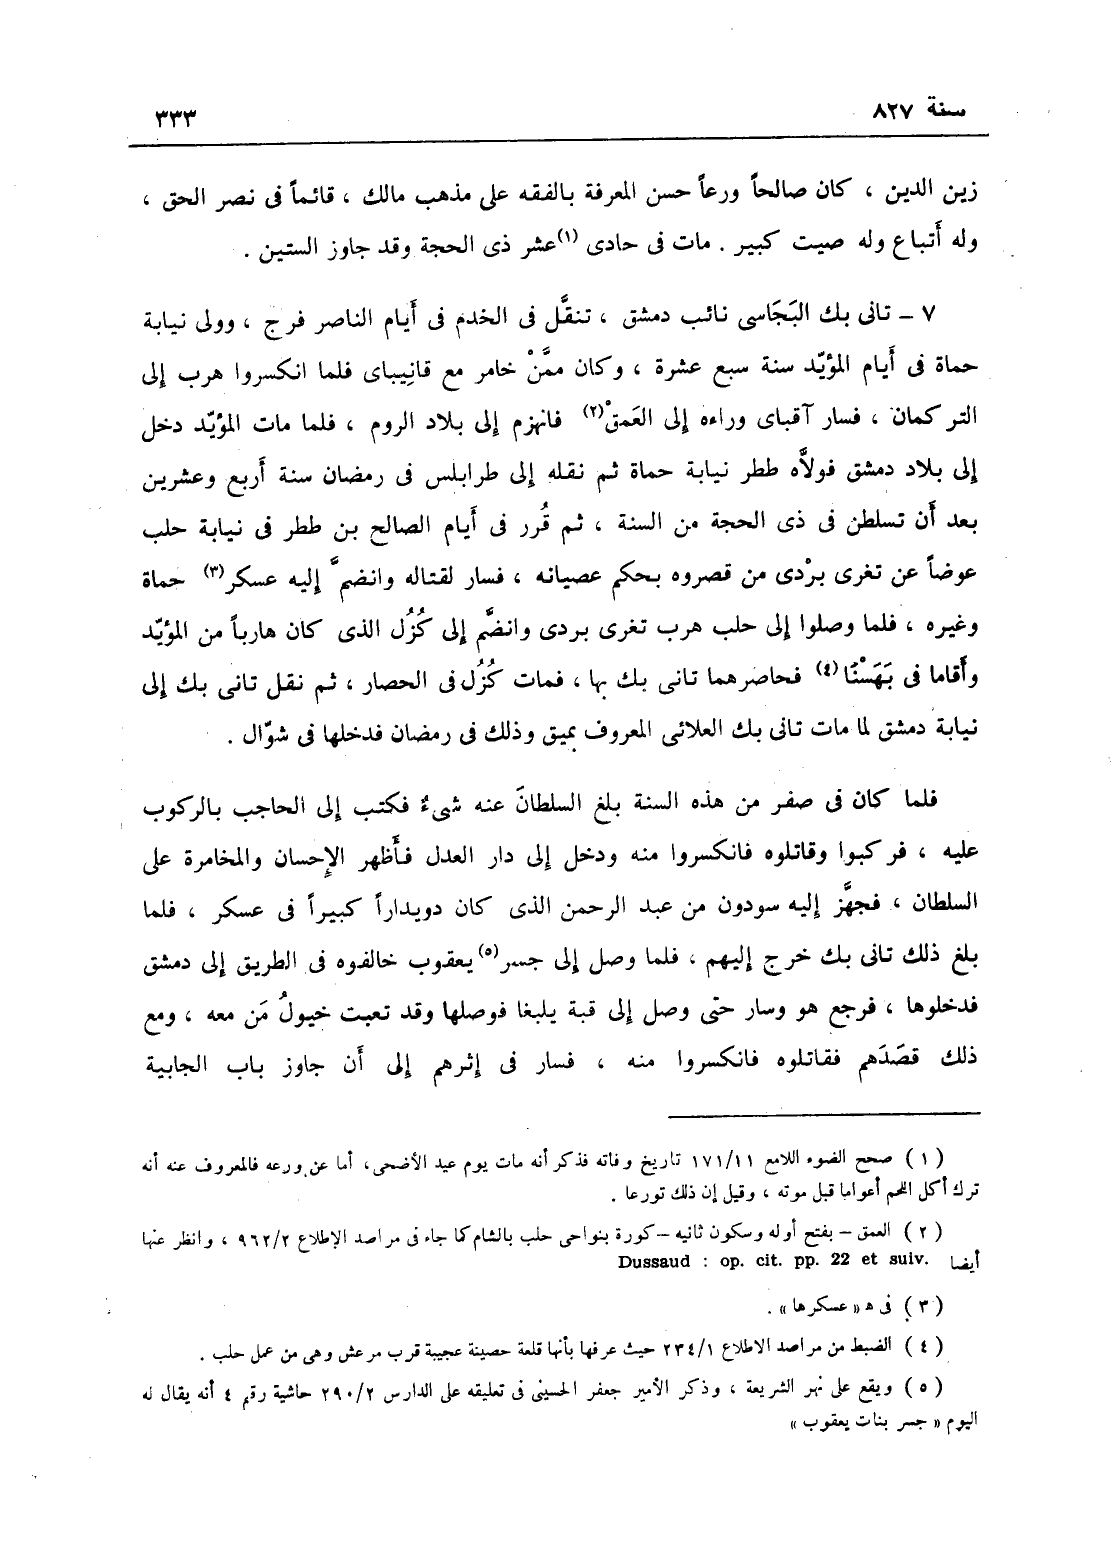 سنة ٨٢٧ ٣٣٣
زين الدين ، كان صالحاً ورعاً حسن المعرفة بالفقه على مذهب مالك ، قائماً فى نصر الحق ،
وله أتباع وله صيت كبير . مات فى حادى (١) عشر ذى الحجة وقد جاوز الستين .
٧ – تانى بك البَجَاسى نائب دمشق ، تنقَّل فى الخدم فى أيام الناصر فرج ، وولى نيابة
حماة فى أيام المؤيّد سنة سبع عشرة ، وكان ممَّنْ خامر مع قانِيباى فلما انكسروا هرب إلى
التركمان ، فسار آقباى وراءه إلى العَمقْ (٢) فانهزم إلى بلاد الروم ، فلما مات المؤيّد دخل
إلى بلاد دمشق فولاَّه ططر نيابة حماة ثم نقله إلى طرابلس فى رمضان سنة أربع وعشرين
بعد أن تسلطن فى ذى الحجة من السنة ، ثم قُرر فى أيام الصالح بن ططر فى نيابة حلب
عوضاً عن تغرى برْدى من قصروه بحكم عصيانه ، فسار لقتاله وانضمَّ إليه عسكر (٣) حماة
وغيره ، فلما وصلوا إلى حلب هرب تغرى بردى وانضَّم إلى كُزُل الذى كان هارباً من المؤيّد
وأقاما فى بَهَسْنَا (٤) فحاصرهما تانى بك بها ، فمات كُزُل فى الحصار ، ثم نقل تانى بك إلى
نيابة دمشق لما مات تانى بك العلائى المعروف بميق وذلك فى رمضان فدخلها فى شوّال .
فلما كان فى صفر من هذه السنة بلغ السلطانَ عنه شىءٌ فكتب إلى الحاجب بالركوب
عليه ، فركبوا وقاتلوه فانكسروا منه ودخل إلى دار العدل فأظهر الإحسان والمخامرة على
السلطان ، فجهَّز إليه سودون من عبد الرحمن الذى كان دويداراً كبيراً فى عسكر ، فلما
بلغ ذلك تانى بك خرج إليهم ، فلما وصل إلى جسر (٥) يعقوب خالفوه فى الطريق إلى دمشق
فدخلوها ، فرجع هو وسار حتى وصل إلى قبة يلبغا فوصلها وقد تعبت خيولُ مَن معه ، ومع
ذلك قصَدَهم فقاتلوه فانكسروا منه ، فسار فى إثرهم إلى أن جاوز باب الجابية
( ١ ) صحح الضوء اللامع ١٧١/١١ تاريخ وفاته فذكر أنه مات يوم عيد الأضحى، أما عن ورعه فالمعروف عنه أنه
ترك أكل اللحم أعواما قبل موته ، وقيل إن ذلك تورعا .
( ٢ ) العمق – بفتح أوله وسكون ثانيه – كورة بنواحى حلب بالشام كما جاء فى مراصد الإطلاع ٩٦٢/٢ ، وانظر عنها
أيضا Dussaud : op. cit. pp. 22 et suiv.
( ٣ ) فى ه « عسكرها » .
( ٤ ) الضبط من مراصد الاطلاع ٢٣٤/١ حيث عرفها بأنها قلعة حصينة عجيبة قرب مرعش وهى من عمل حلب .
( ٥ ) ويقع على نهر الشريعة ، وذكر الأمير جعفر الحسينى فى تعليقه على الدارس ٢٩٠/٢ حاشية رقم ٤ أنه يقال له
اليوم « جسر بنات يعقوب »